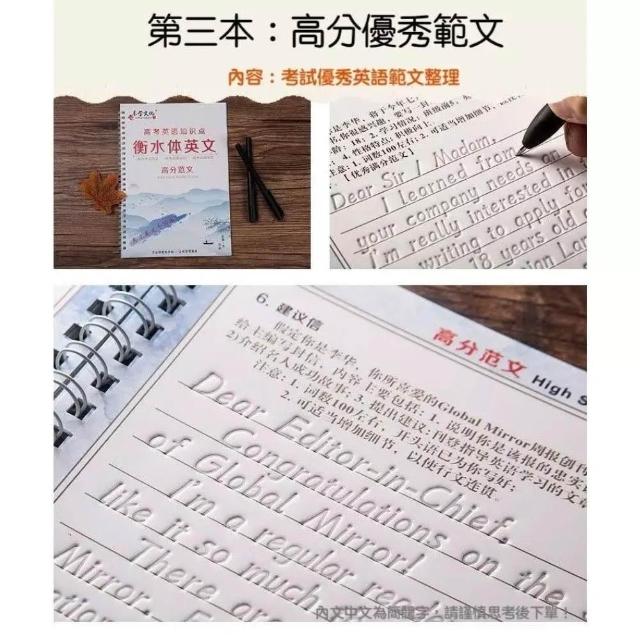 第三本：高分優秀範文
內容：考試優秀英語範文整理
高考英语知识点
衡水体英文
高分范文
注意: 1. 词数100左右; 2. 可适当增加细节,
【优秀满分范文】
Dear Sir / Madam,
I learned from
your company needs an
I'm really interested in
writing to apply for
18 years old
6. 建议信
高分范文 High S
假定你是李华, 你所喜爱的Global Mirror周报创刊
给主编写封信, 内容主要包括: 1. 说明你是该报的忠实
2)介绍名人成功故事; 3. 提出建议: 刊登指导英语学习的文章
注意: 1. 词数100左右, 开头语已为你写好;
2. 可适当增加细节, 以使行文连贯。
Dear Editor-in-Chief,
Congratulations on the
of Global Mirror!
I'm a regular
like it so much
There are
Mirror.
內文中文為簡體字，請謹慎思考後下單！